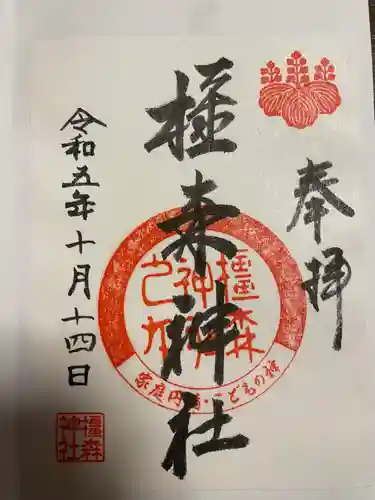 奉拝
橿森神社
橿森
神社
家庭円満・こどもの神
令和五年十月十四日
橿森
神社